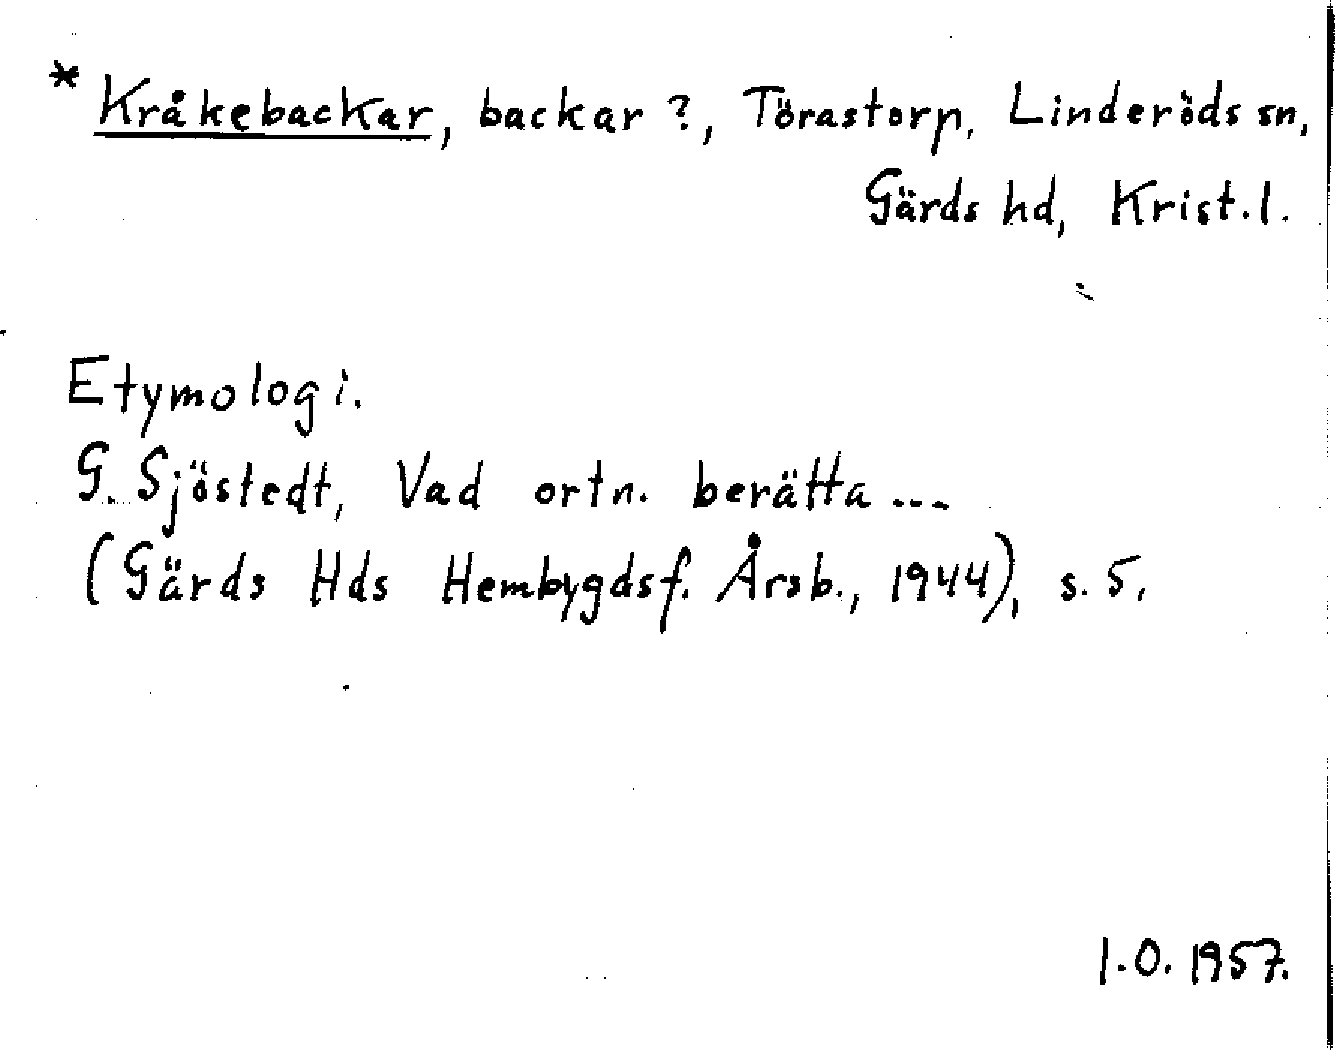 * Kråkebackar, backar ?, Törastorp, Linderöds sn,
Gärds hd, Krist.l.
Etymologi.
G. Sjöstedt, Vad ortn. berätta ...
(Gärds Hds Hembygdsf. Årsb., 1944), s. 5.
I.O. 1957.